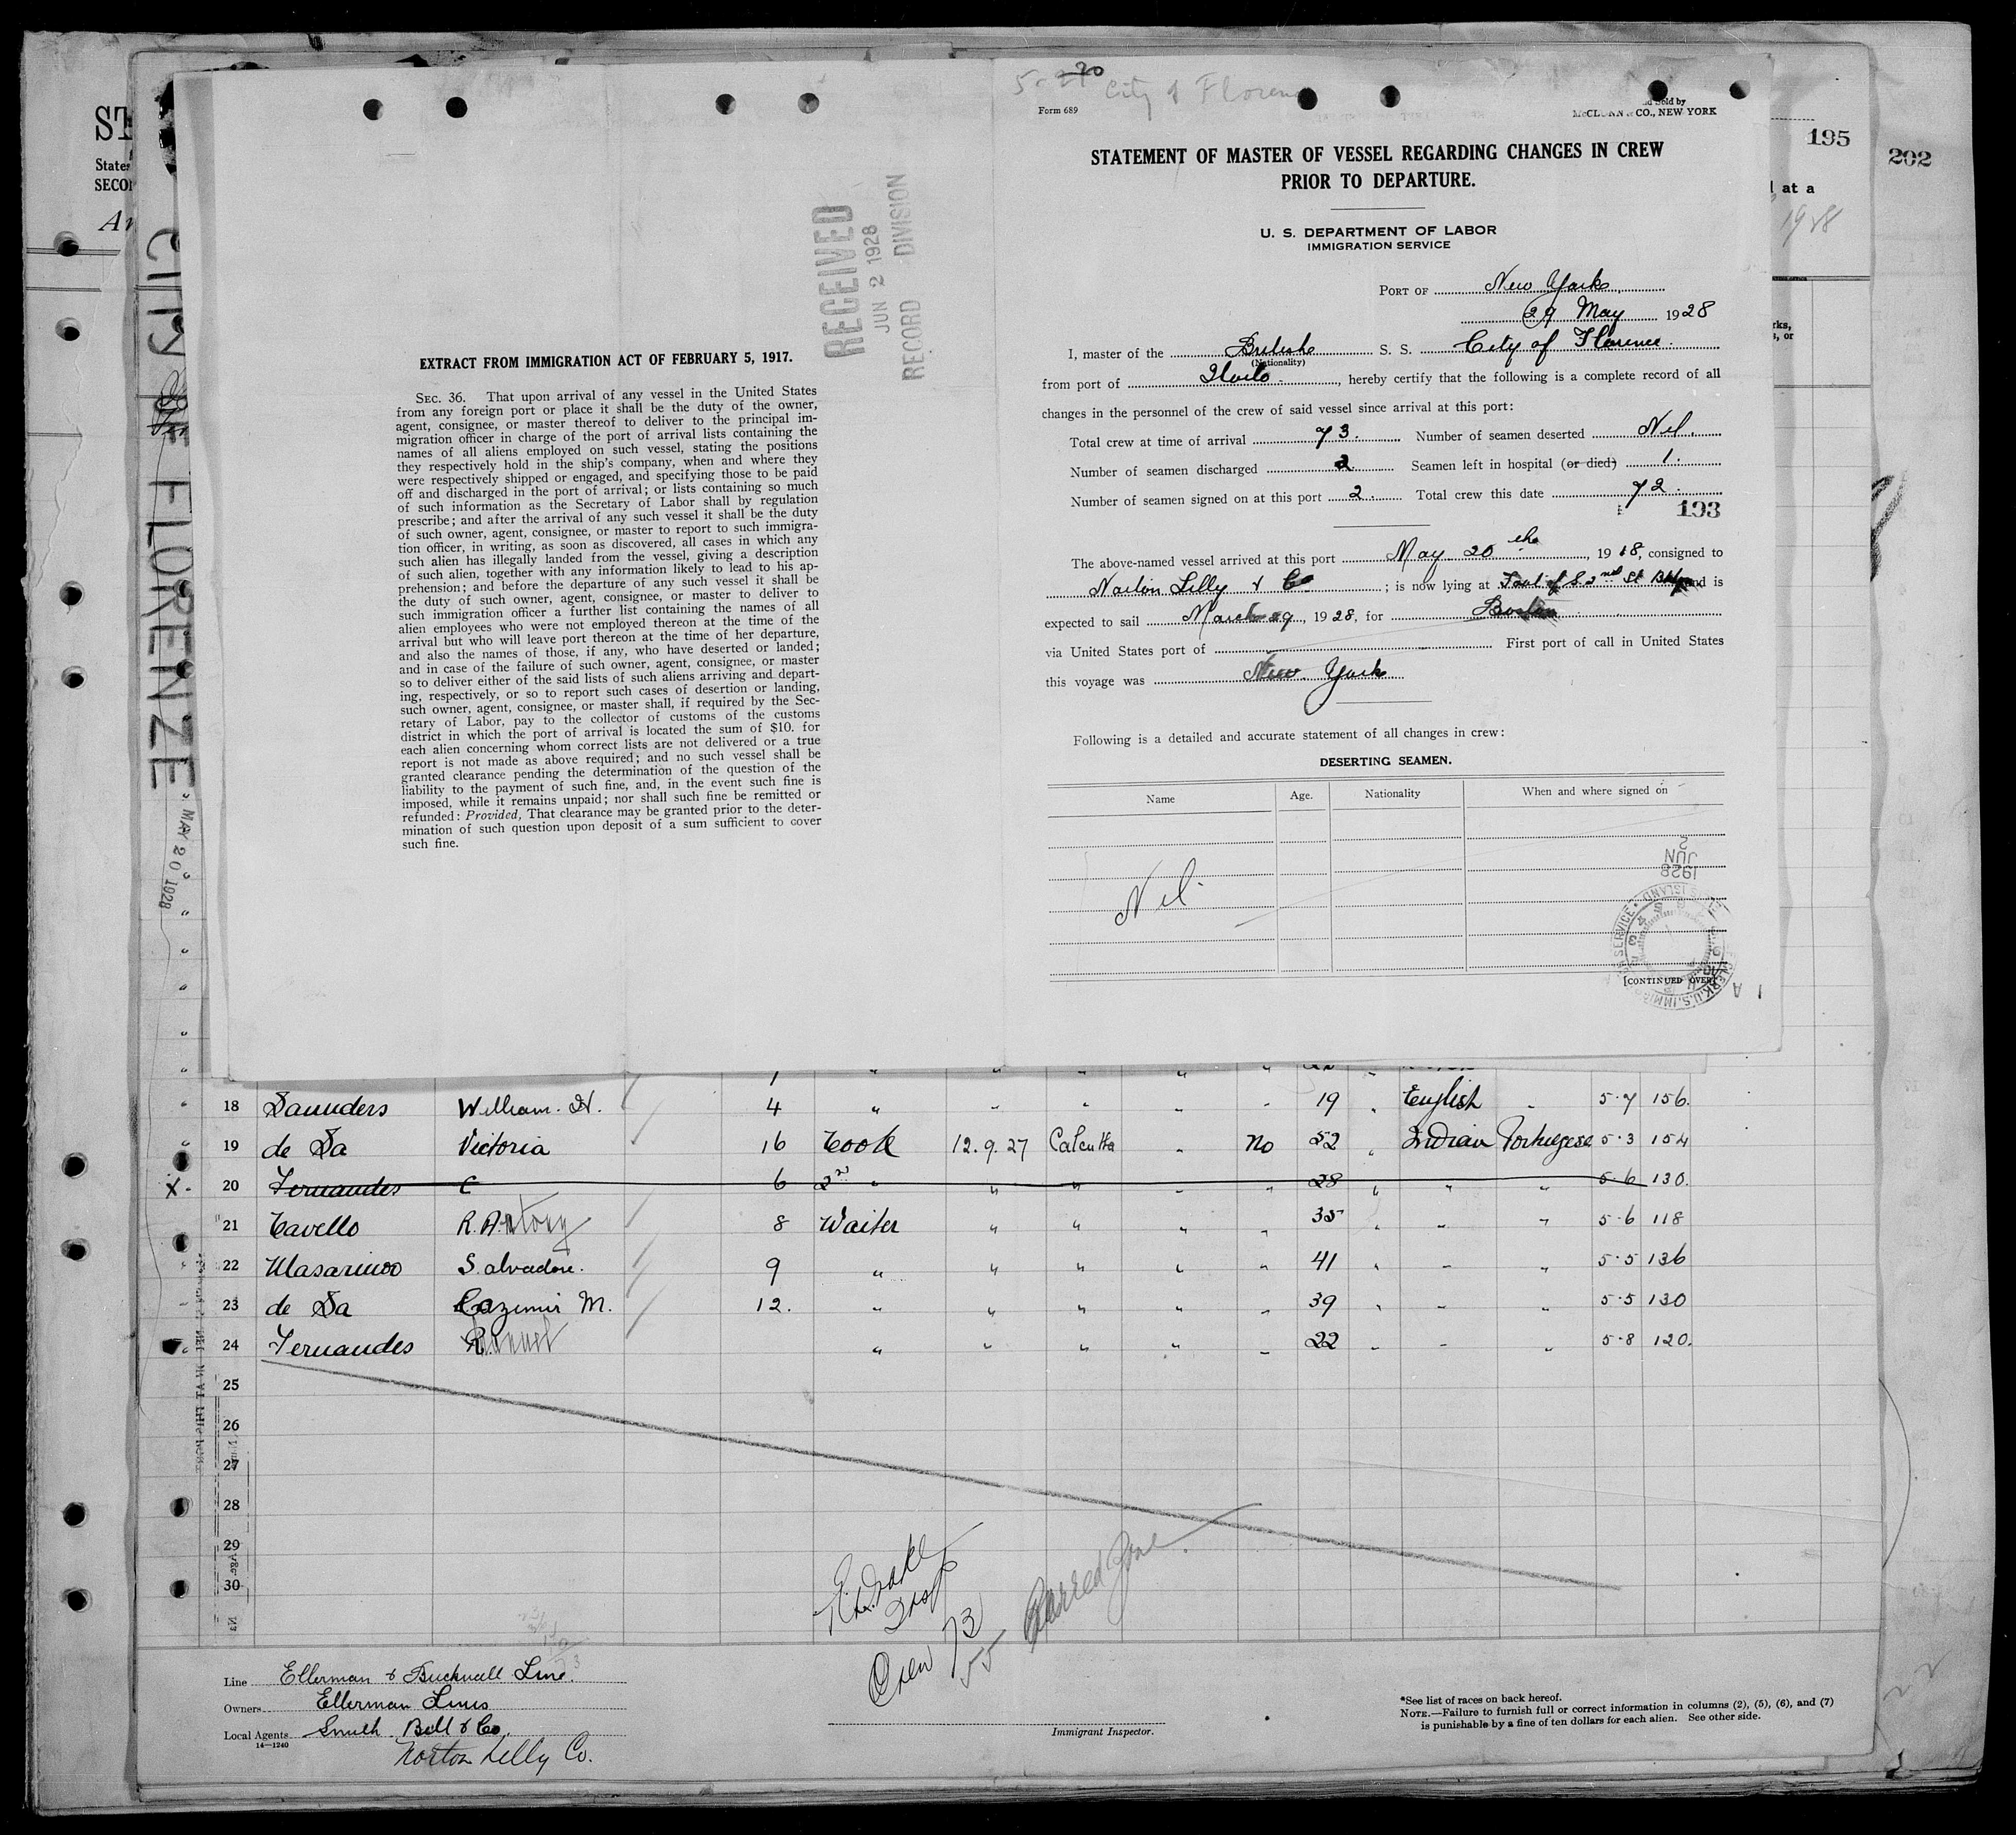 5-21 20 City of Floren
Form 689
Sold by
McCLUNN & CO., NEW YORK
STATEMENT OF MASTER OF VESSEL REGARDING CHANGES IN CREW
PRIOR TO DEPARTURE.
U. S. DEPARTMENT OF LABOR
IMMIGRATION SERVICE
PORT OF New York
29 May 1928
I, master of the British S. S. City of Florence.
(Nationality)
from port of Iloilo, hereby certify that the following is a complete record of all
changes in the personnel of the crew of said vessel since arrival at this port:
Total crew at time of arrival 73. Number of seamen deserted Nil.
Number of seamen discharged 2. Seamen left in hospital (or died) 1.
Number of seamen signed on at this port 2. Total crew this date 72.
193
The above-named vessel arrived at this port May 20 the, 1928, consigned to
Norton Lilly & Co ; is now lying at Foot of 52nd St Bklyn and is
expected to sail March 29, 1928, for Boston
via United States port of First port of call in United States
this voyage was New York
Following is a detailed and accurate statement of all changes in crew:
DESERTING SEAMEN.
Name Age. Nationality When and where signed on
Nil.
JUN 2 1928
[CONTINUED OVER]
RECEIVED
JUN 2 1928
RECORD DIVISION
EXTRACT FROM IMMIGRATION ACT OF FEBRUARY 5, 1917.
SEC. 36. That upon arrival of any vessel in the United States
from any foreign port or place it shall be the duty of the owner,
agent, consignee, or master thereof to deliver to the principal im-
migration officer in charge of the port of arrival lists containing the
names of all aliens employed on such vessel, stating the positions
they respectively hold in the ship's company, when and where they
were respectively shipped or engaged, and specifying those to be paid
off and discharged in the port of arrival; or lists containing so much
of such information as the Secretary of Labor shall by regulation
prescribe; and after the arrival of any such vessel it shall be the duty
of such owner, agent, consignee, or master to report to such immigra-
tion officer, in writing, as soon as discovered, all cases in which any
such alien has illegally landed from the vessel, giving a description
of such alien, together with any information likely to lead to his ap-
prehension; and before the departure of any such vessel it shall be
the duty of such owner, agent, consignee, or master to deliver to
such immigration officer a further list containing the names of all
alien employees who were not employed thereon at the time of the
arrival but who will leave port thereon at the time of her departure,
and also the names of those, if any, who have deserted or landed;
and in case of the failure of such owner, agent, consignee, or master
so to deliver either of the said lists of such aliens arriving and depart-
ing, respectively, or so to report such cases of desertion or landing,
such owner, agent, consignee, or master shall, if required by the Sec-
retary of Labor, pay to the collector of customs of the customs
district in which the port of arrival is located the sum of $10. for
each alien concerning whom correct lists are not delivered or a true
report is not made as above required; and no such vessel shall be
granted clearance pending the determination of the question of the
liability to the payment of such fine, and, in the event such fine is
imposed, while it remains unpaid; nor shall such fine be remitted or
refunded: Provided, That clearance may be granted prior to the deter-
mination of such question upon deposit of a sum sufficient to cover
such fine.
195
202
at a
1928
CITY OF FLORENZE
MAY 20 1928
18 Saunders William. H. 4 " " " " " 19 " English " 5·7 156.
19 de Sa Victoria 16 Cook 12.9.27 Calcutta " No 52 " Indian Portugese 5·3 154
X 20 Fernandes C 6 2nd " " " " " 28 " " " 5·6 130.
21 Cavello R. Antony 8 Waiter " " " " 35 " " " 5·6 118
22 Masarinoo Salvadore. 9 " " " " " 41 " " " 5·5 136
23 de Sa Cazemir M. 12. " " " " " 39 " " " 5·5 130
24 Fernandes R. " " " " " 22 " " " 5·8 120.
25
26
27
28
29
30
Crew 73
55 Barred Zone
Line Ellerman & Bucknall Line.
Owners Ellerman Lines
Local Agents Smith Bell & Co,
14—1240
Norton Lilly Co.
Immigrant Inspector.
*See list of races on back hereof.
NOTE.—Failure to furnish full or correct information in columns (2), (5), (6), and (7)
is punishable by a fine of ten dollars for each alien. See other side.